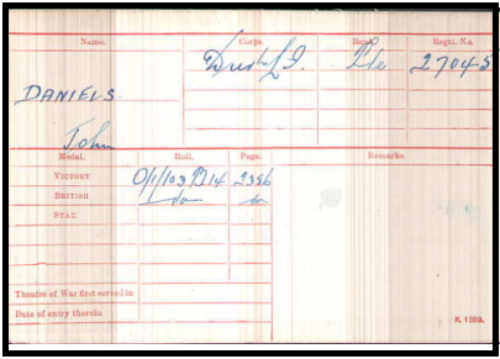 Name. Corps. Rank. Regtl. No.
Durh. L.I. Pte 27045
DANIELS.
John
Medal. Roll. Page. Remarks.
VICTORY O/1/103 B14 2356
BRITISH do do
STAR
Theatre of War first served in
Date of entry therein
K. 1380.